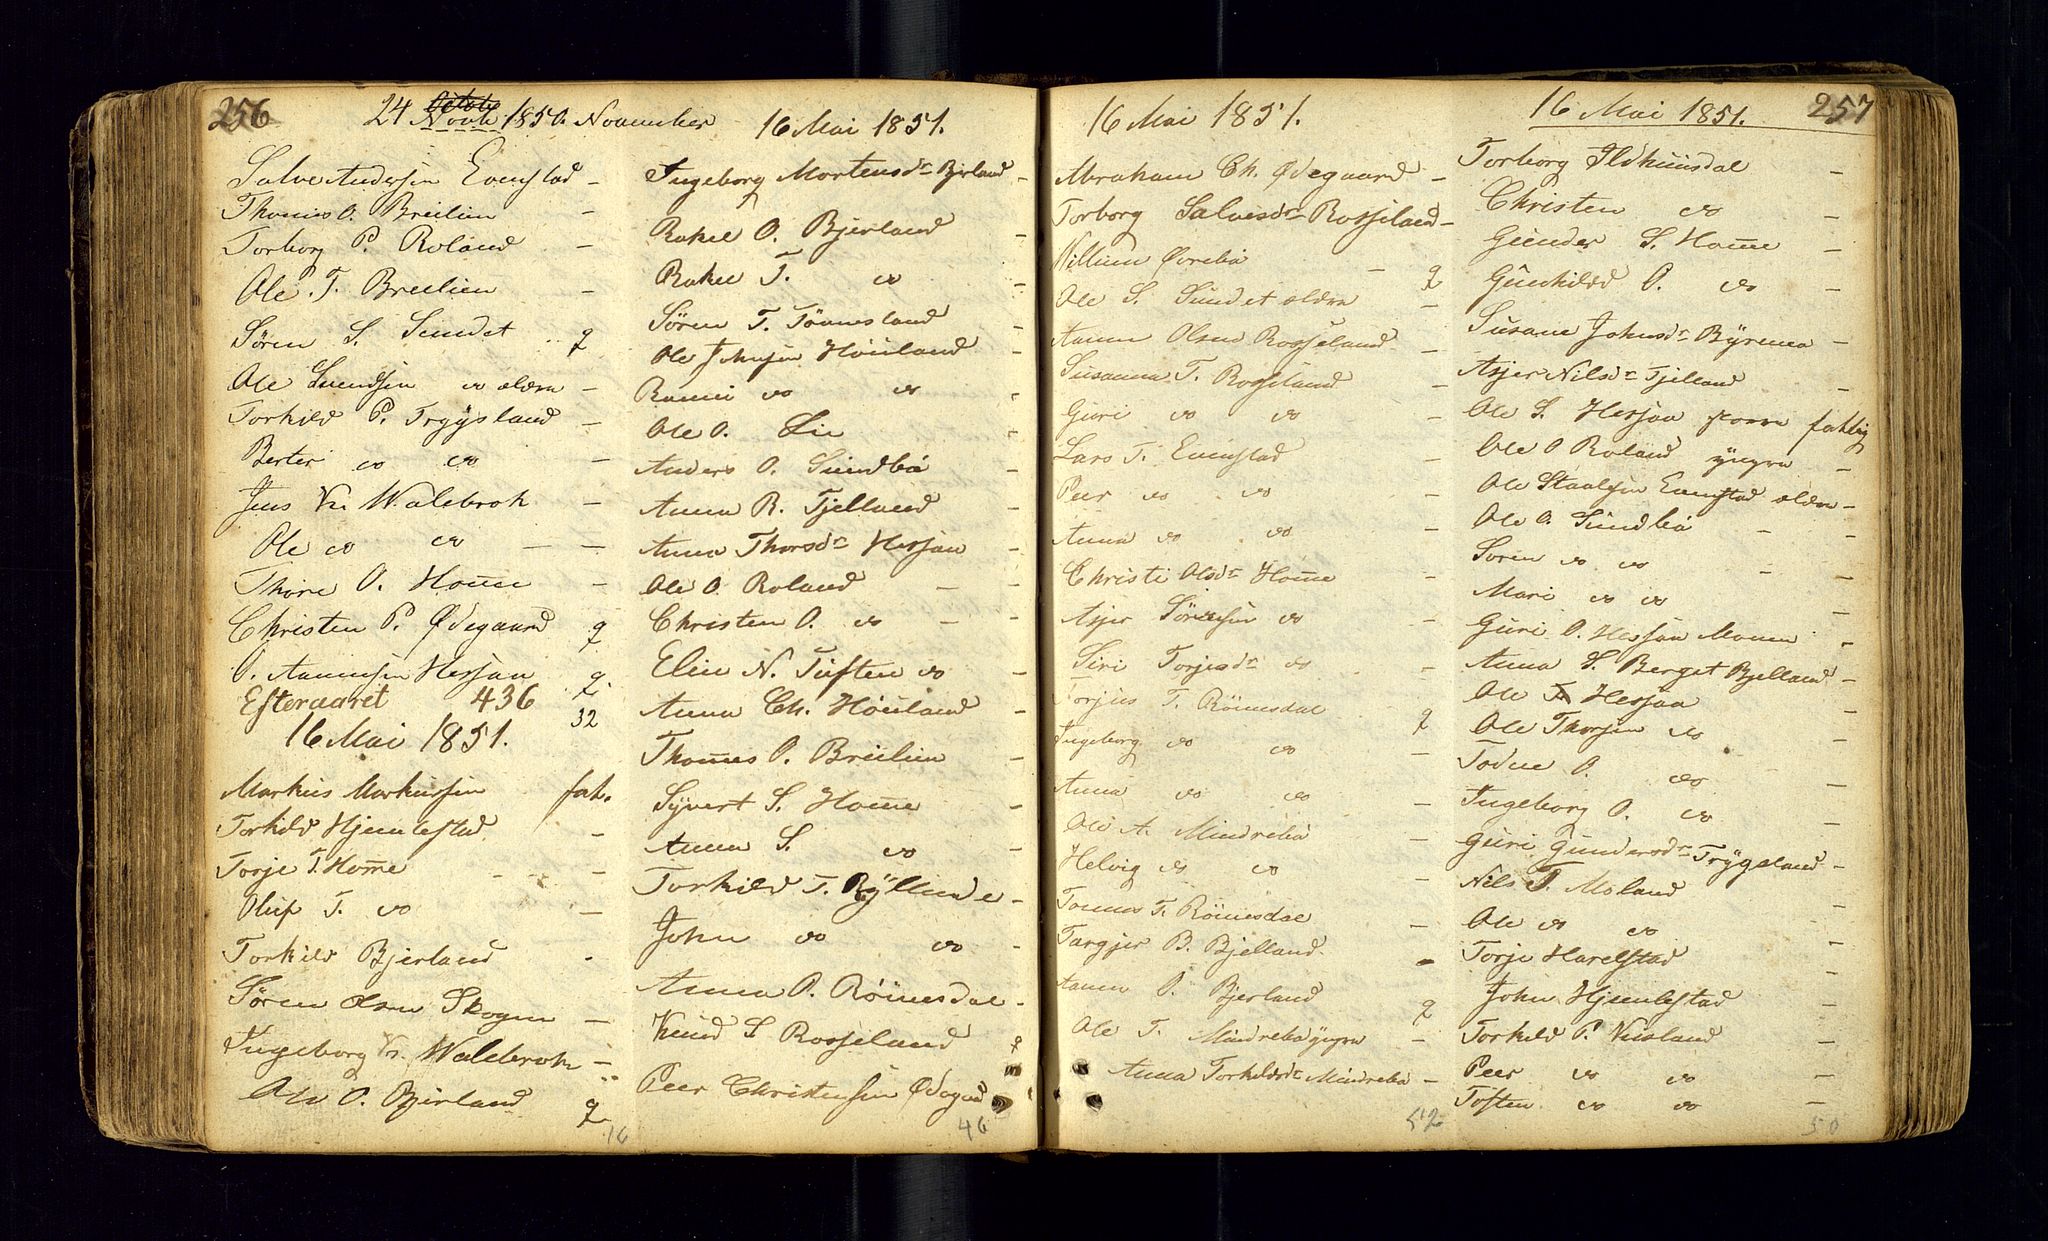 256
24 Novbr 1850. November
Salve Andersen Evenstad -
Thomes O. Breilien -
Torborg P. Roland -
Ole T. Breilien -
Sören S. Sundet q
Ole Svendsen do ældre -
Torkild P. Trygsland -
Berter do do -
Jens Kr. Walebrok -
Ole do do - -
Thore O. Home -
Christen P. Ødegaard q
O. Aanunsen Hessaa q
Efteraaret 436 32
16 Mai 1851.
Markus Markussen fat.
Torkild Hjemlestad -
Torje T. Home -
Oluf T. do -
Torkild Bjerland -
Sören Olsen Skogen -
Ingeborg Kr. Walebrok -
Ole O. Bjerland q
16
16 Mai 1851.
Ingeborg Mortensdr Bjerland -
Rakel O. Bjerland -
Rakel T. do -
Sören T. Tönnesland -
Ole Jensen Höiland -
Rannei do do -
Ole O. Lie -
Anders O. Sundbö -
Anna R. Tjelland -
Anna Thorsdr Hessaa -
Ole O. Roland - -
Christen O. do - -
Elin N. Tuften do -
Anna Ch. Höiland -
Thomes O. Breilien -
Syvert S. Home -
Anna S. do -
Torkild T. Ryllende -
John do do -
Anna O. Röinesdal -
Knud S Rosseland q
Peer Christensen Ødegrd
46
16 Mai 1851.
Abraham Ch. Ødegaard -
Torborg Salvesdr Rosseland -
Willum Øvrebö - q
Ole S. Sundet ældre -
Aanen Olsen Rosseland -
Susanna T. Rosseland -
Guri do do -
Lars T. Evenstad -
Peer do do -
Anna do do -
Christi Olsdr Home -
Asjer Sörensen do -
Siri Torjesdr do -
Torjus T. Röinesdal q
Ingeborg do do -
Anna do do -
Ole A. Mindrebö -
Helvig do do -
Tomes T. Röinesdal -
Targjer B. Bjelland -
Aanen O. Bjerland q
Ole T. Mindrebö yngre -
Anna Torkildsdr Mindrebö -
52
16 Mai 1851. 257
Torborg Ildhuusdal -
Christen do -
Gunder S. Home -
Gunhild O. do -
Susane Johnsdr Byremo -
Asjer Nilsdr Tjelland -
Ole S. Hessaa fattig
Ole O Roland yngre -
Ole Staalesen Evenstad ældre -
Ole O. Sundbö - -
Soren do do - -
Mari do do -
Guri O. Hessaa Monen -
Anna S. Berget Bjelland -
Ole T. Hessaa -
Ole Thorsen do -
Todne O. do -
Ingeborg O. do -
Guri Gundersdr Trygsland -
Nils T. Moland -
Ole do do -
Torje Harelstad -
John Hjemlestad -
Torkild P. Kusland -
Peer do do -
Toften do do -
50